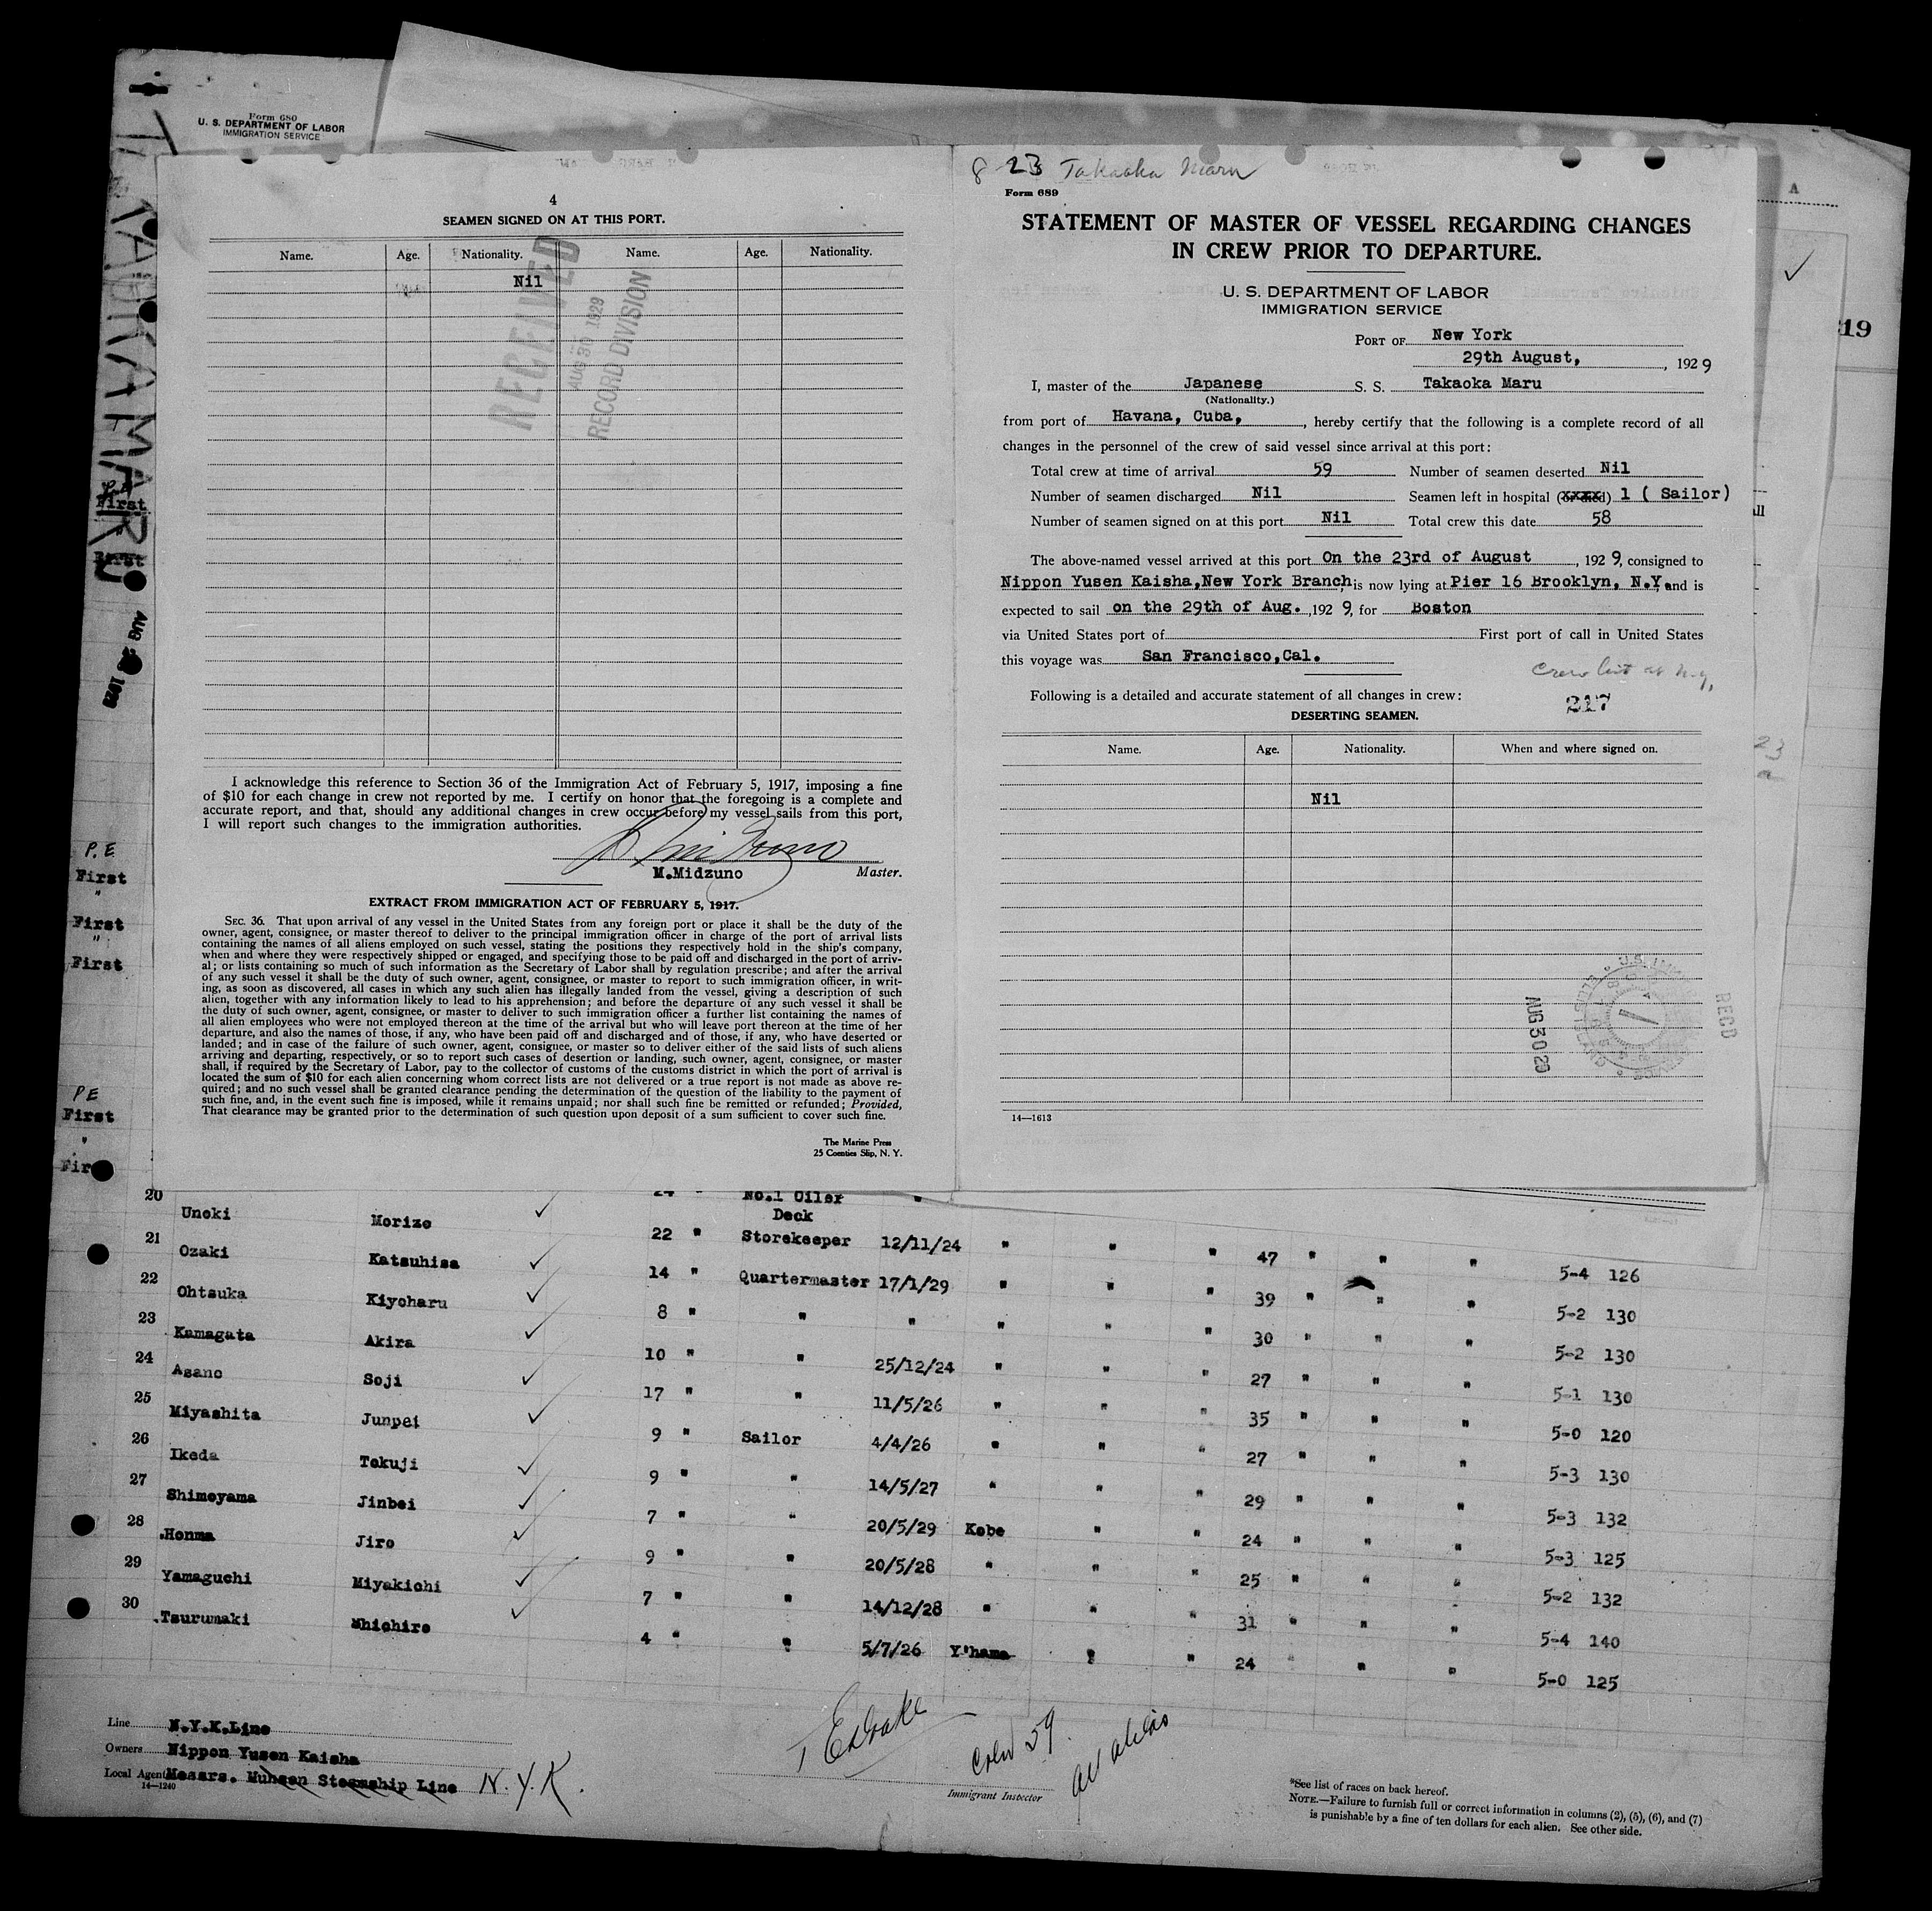 Form 680
U. S. DEPARTMENT OF LABOR
IMMIGRATION SERVICE
TAKAOKA MARU
A
19
4
SEAMEN SIGNED ON AT THIS PORT.
Name. Age. Nationality. Name. Age. Nationality.
Nil
RECEIVED
AUG 30 1929
RECORD DIVISION
I acknowledge this reference to Section 36 of the Immigration Act of February 5, 1917, imposing a fine
of $10 for each change in crew not reported by me. I certify on honor that the foregoing is a complete and
accurate report, and that, should any additional changes in crew occur before my vessel sails from this port,
I will report such changes to the immigration authorities.
M.Midzuno Master.
EXTRACT FROM IMMIGRATION ACT OF FEBRUARY 5, 1917.
SEC. 36. That upon arrival of any vessel in the United States from any foreign port or place it shall be the duty of the
owner, agent, consignee, or master thereof to deliver to the principal immigration officer in charge of the port of arrival lists
containing the names of all aliens employed on such vessel, stating the positions they respectively hold in the ship's company,
when and where they were respectively shipped or engaged, and specifying those to be paid off and discharged in the port of arriv-
al; or lists containing so much of such information as the Secretary of Labor shall by regulation prescribe; and after the arrival
of any such vessel it shall be the duty of such owner, agent, consignee, or master to report to such immigration officer, in writ-
ing, as soon as discovered, all cases in which any such alien has illegally landed from the vessel, giving a description of such
alien, together with any information likely to lead to his apprehension; and before the departure of any such vessel it shall be
the duty of such owner, agent, consignee, or master to deliver to such immigration officer a further list containing the names of
all alien employees who were not employed thereon at the time of the arrival but who will leave port thereon at the time of her
departure, and also the names of those, if any, who have been paid off and discharged and of those, if any, who have deserted or
landed; and in case of the failure of such owner, agent, consignee, or master so to deliver either of the said lists of such aliens
arriving and departing, respectively, or so to report such cases of desertion or landing, such owner, agent, consignee, or master
shall, if required by the Secretary of Labor, pay to the collector of customs of the customs district in which the port of arrival is
located the sum of $10 for each alien concerning whom correct lists are not delivered or a true report is not made as above re-
quired; and no such vessel shall be granted clearance pending the determination of the question of the liability to the payment of
such fine, and, in the event such fine is imposed, while it remains unpaid; nor shall such fine be remitted or refunded; Provided,
That clearance may be granted prior to the determination of such question upon deposit of a sum sufficient to cover such fine.
The Marine Press
25 Coenties Slip, N. Y.
8 23 Takaoka Maru
Form 689
STATEMENT OF MASTER OF VESSEL REGARDING CHANGES
IN CREW PRIOR TO DEPARTURE.
U. S. DEPARTMENT OF LABOR
IMMIGRATION SERVICE
PORT OF New York
29th August, , 192 9
I, master of the Japanese S. S. Takaoka Maru
(Nationality.)
from port of Havana, Cuba, , hereby certify that the following is a complete record of all
changes in the personnel of the crew of said vessel since arrival at this port:
Total crew at time of arrival 59 Number of seamen deserted Nil
Number of seamen discharged Nil Seamen left in hospital (or died) 1 ( Sailor)
Number of seamen signed on at this port Nil Total crew this date 58
The above-named vessel arrived at this port On the 23rd of August , 192 9, consigned to
Nippon Yusen Kaisha,New York Branch, is now lying at Pier 16 Brooklyn, N.Y, and is
expected to sail on the 29th of Aug. , 192 9, for Boston
via United States port of First port of call in United States
this voyage was San Francisco,Cal.
Crew list at N.Y.
217
Following is a detailed and accurate statement of all changes in crew:
DESERTING SEAMEN.
Name. Age. Nationality. When and where signed on.
Nil
AUG 30 29
RECD
14—1613
First
First
P.E
First
"
First
"
First
PE
First
"
20 Unoki Morizo 24 " No.1 Oiler "
21 Ozaki Katsuhisa 22 " Deck Storekeeper 12/11/24 " " " 47 " " " 5-4 126
22 Ohtsuka Kiyoharu 14 " Quartermaster 17/1/29 " " " 39 " " " 5-2 130
23 Kamagata Akira 8 " " " " " " 30 " " " 5-2 130
24 Asano Soji 10 " " 25/12/24 " " " 27 " " " 5-1 130
25 Miyashita Junpei 17 " " 11/5/26 " " " 35 " " " 5-0 120
26 Ikeda Tokuji 9 " Sailor 4/4/26 " " " 27 " " " 5-3 130
27 Shimoyama Jinbei 9 " " 14/5/27 " " " 29 " " " 5-3 132
28 Honma Jiro 7 " " 20/5/29 Kobe " " 24 " " " 5-3 125
29 Yamaguchi Miyakichi 9 " " 20/5/28 " " " 25 " " " 5-2 132
30 Tsurumaki 7 " " 14/12/28 " " " 31 " " " 5-4 140
4 " " 5/7/26 Y'hama " " 24 " " " 5-0 125
Line N.Y.K.Line
Owners Nippon Yusen Kaisha
Local Agent Messrs. Munson Steamship Line N.Y.K.
14—1240
Crew 59.
all aliens
Immigrant Inspector
*See list of races on back hereof.
NOTE.—Failure to furnish full or correct information in columns (2), (5), (6), and (7)
is punishable by a fine of ten dollars for each alien. See other side.